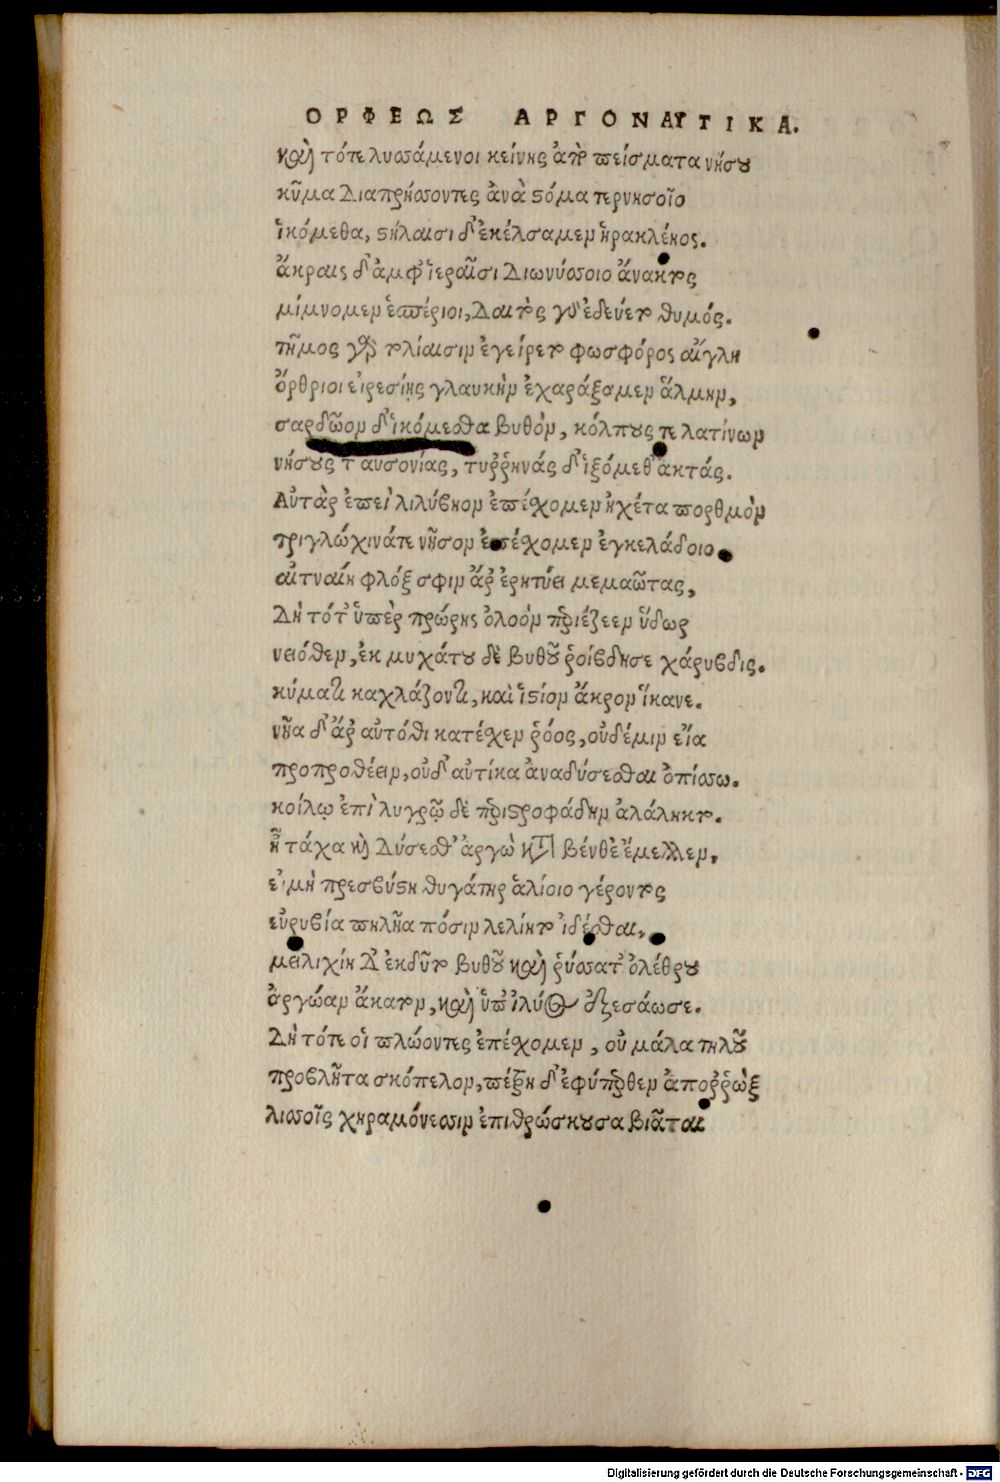 ΟΡΦΕΩΣ ΑΡΓΟΝΑΥΤΙΚΑ.
καὶ τότε λυσσάμενοι κείνης ἀπὸ πείσματα νήσου
κῦμα διαπρήσσοντες ἀνὰ στόμα τερνησοῖο
ἱκόμεθα, στήλαισι δ' ἐκέλσαμεν ἡρακλέηος.
ἄκραις δ' ἀμφ' ἱεραῖσι διωνύσσοιο ἄνακτος
μίμνομεν ἑσπέριοι, δαιτὸς γὰρ ἐδεύετο θυμός.
τῆμος γὰρ τολίαισιν ἐγείρετο φωσφόρος αἴγλη
ὄρθριοι εἰρεσίης γλαυκὴν ἐχαράξαμεν ἅλμην,
σαρδῶον δ' ἱκόμεσθα βυθὸν, κόλπους τε λατίνων
νήσους τ' αυσονίας, τυῤῥηνάς δ' ἱξόμεθ' ἀκτάς.
Αὐτὰρ ἐπεὶ λιλύβηον ἐπέσχομεν ἠχέτα πορθμὸν
τριγλώχινάτε νῆσον ἐπέσχομεν ἐγκελάδοιο
αἰτναίη φλόξ σφιν ἄρ' ἐρητύει μεμαῶτας,
Δὴ τότ' ὑπὲρ πρώρης ὀλοόν περιέζεεν ὕδωρ
νειόθεν, ἐκ μυχάτου δὲ βυθοῦ ῥοίβδησε χάρυβδις.
κύματι καχλάζοντι, καὶ ἱστίον ἄκρον ἵκανε.
νῆα δ' ἄρ' αὐτόθι κατέχεν ῥόος, οὐδέμιν εἴα
προπροθέειν, οὐδ' αὐτίκα ἀναδύσεσθαι ὀπίσσω.
κοίλῳ ἐπὶ λυγρῷ δὲ περιστροφάδην ἀλάληκτο.
ἦ τάχα καὶ δύσεσθ' ἀργὼ κατὰ βένθε' ἔμελλεν,
εἰμὴ πρεσβύστη θυγάτηρ ἁλίοιο γέροντος
εὐρυβία πηλῆα πόσιν λελίητο ἰδέσθαι,
μειλιχίη δ' ἐκδῦτο βυθοῦ καὶ ῥύσσατ' ὀλέθρου
ἀργώαν ἄκατον, καὶ ὑπ' ἰλύος ἐξεσάωσε.
Δὴ τότε οἱ πλώοντες ἐπέσχομεν, οὐ μάλα τηλοῦ
προβλῆτα σκόπελον, πέτρη δ' ἐφύπερθεν ἀποῤῥὼξ
λισσοῖς χηραμόνεσσιν ἐπιθρώσκουσα βιᾶται
Digitalisierung gefördert durch die Deutsche Forschungsgemeinschaft - DFG